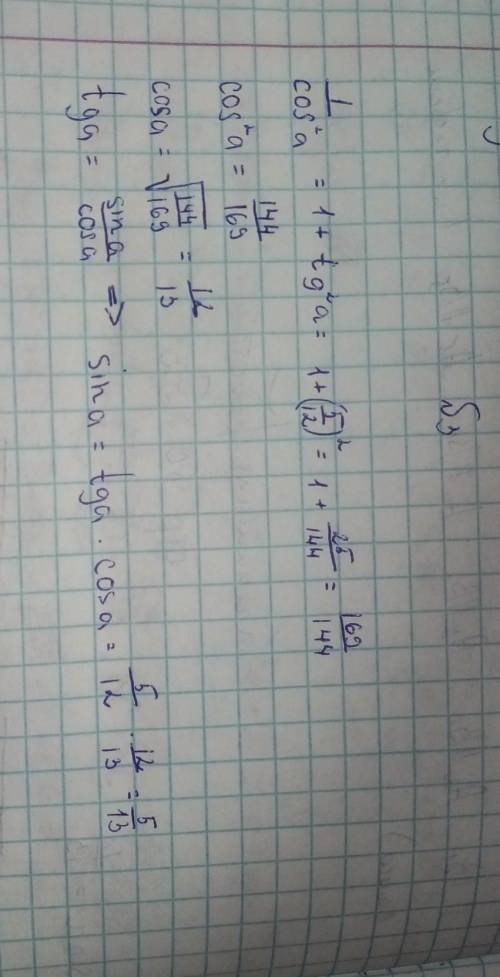 №3
1/cos²a = 1 + tg²a = 1 + (5/12)² = 1 + 25/144 = 169/144
cos²a = 144/169
cosa = √(144/169) = 12/13
tga = sina/cosa => sina = tga · cosa = 5/12 · 12/13 = 5/13